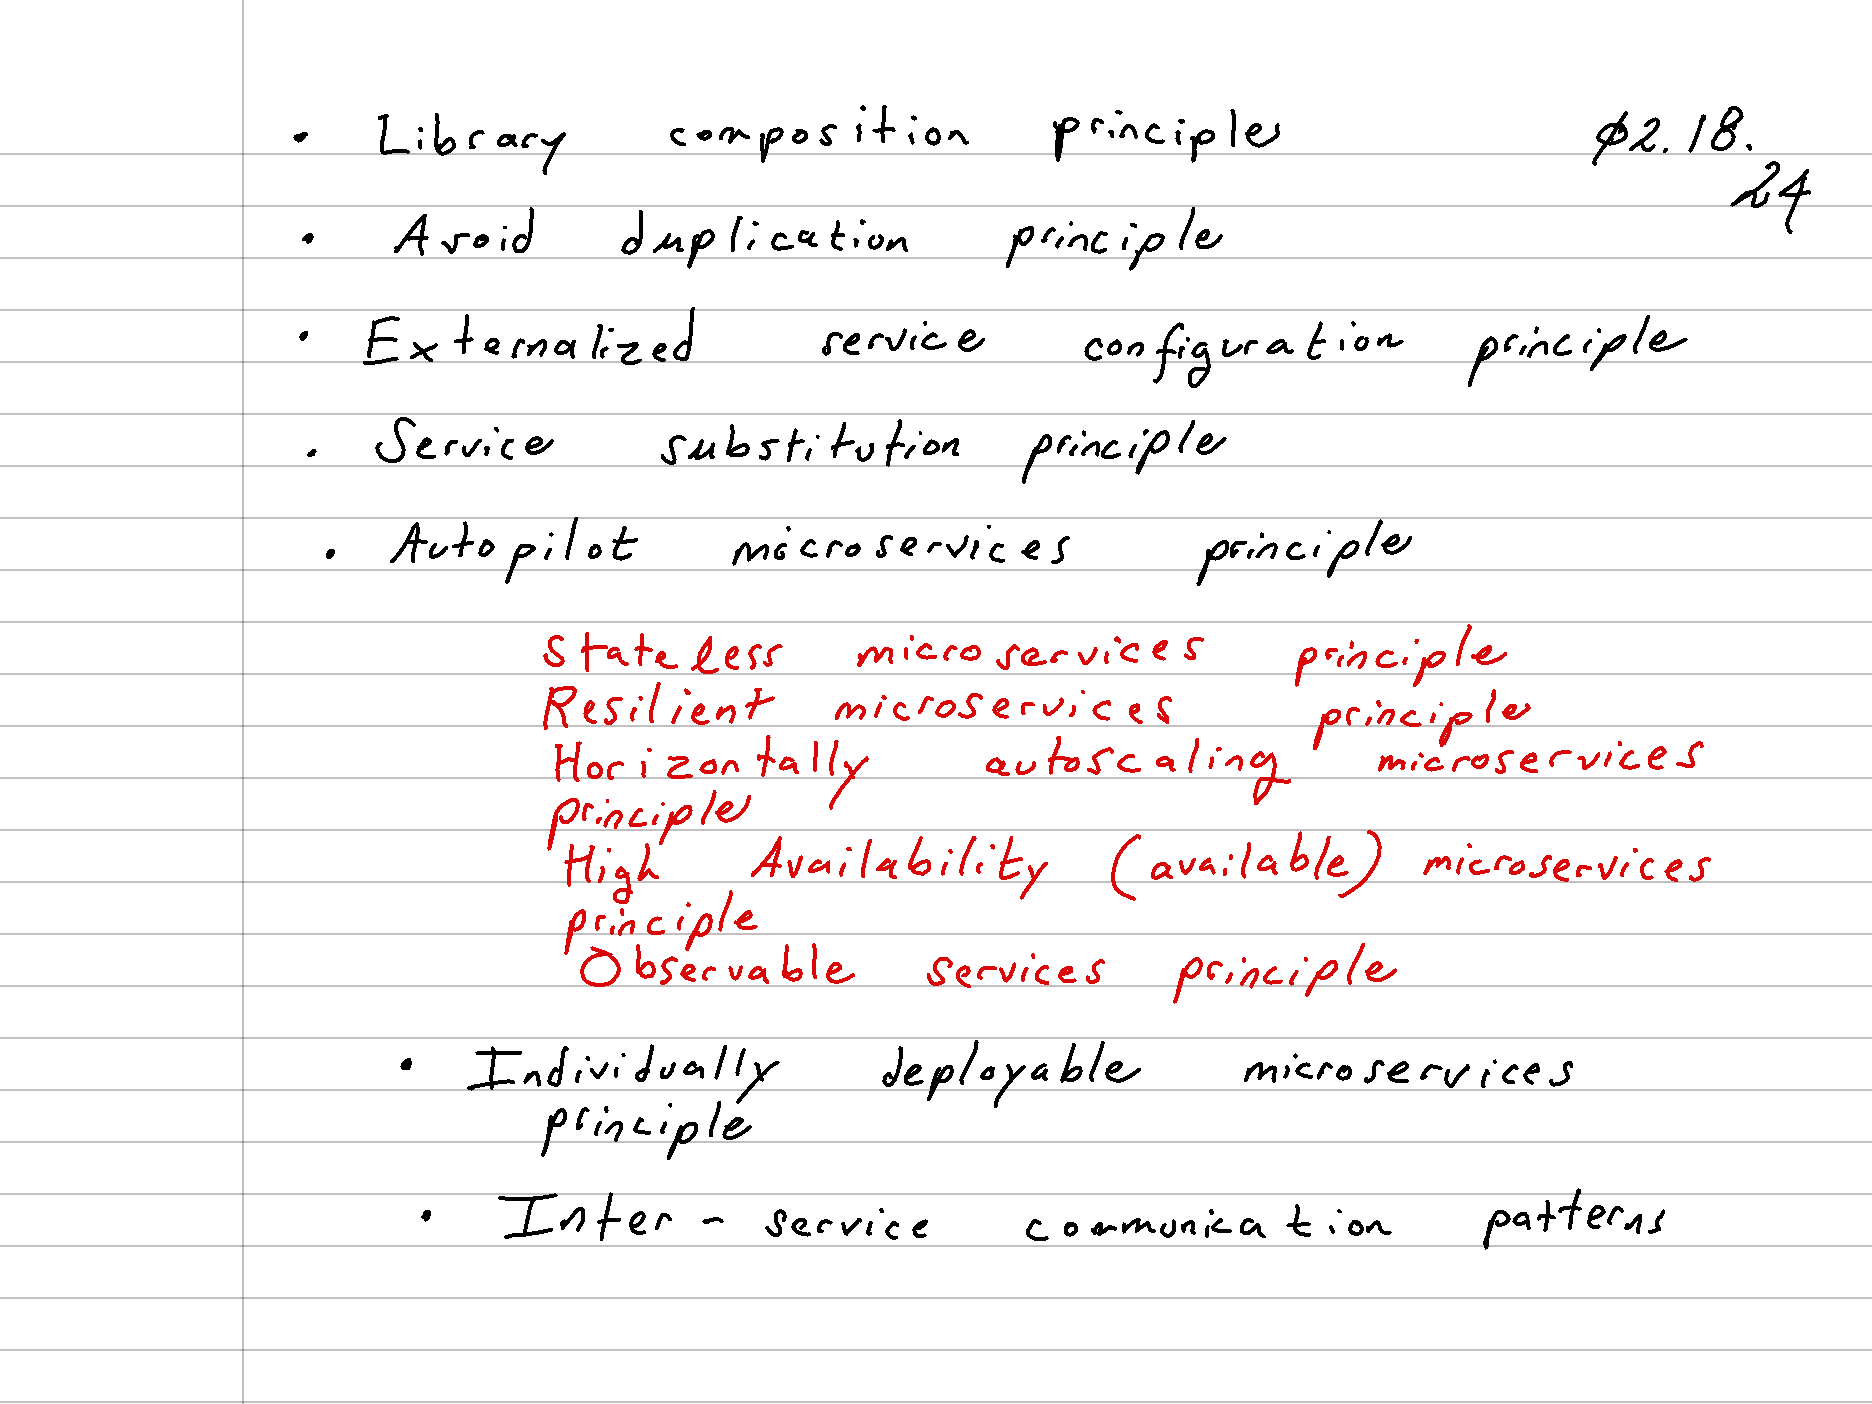 • Library composition principle ø2.18.
24
• Avoid duplication principle
• Externalized service configuration principle
• Service substitution principle
• Autopilot microservices principle
Stateless microservices principle
Resilient microservices principle
Horizontally autoscaling microservices
principle
High Availability (available) microservices
principle
Observable services principle
• Individually deployable microservices
principle
• Inter-service communication patterns